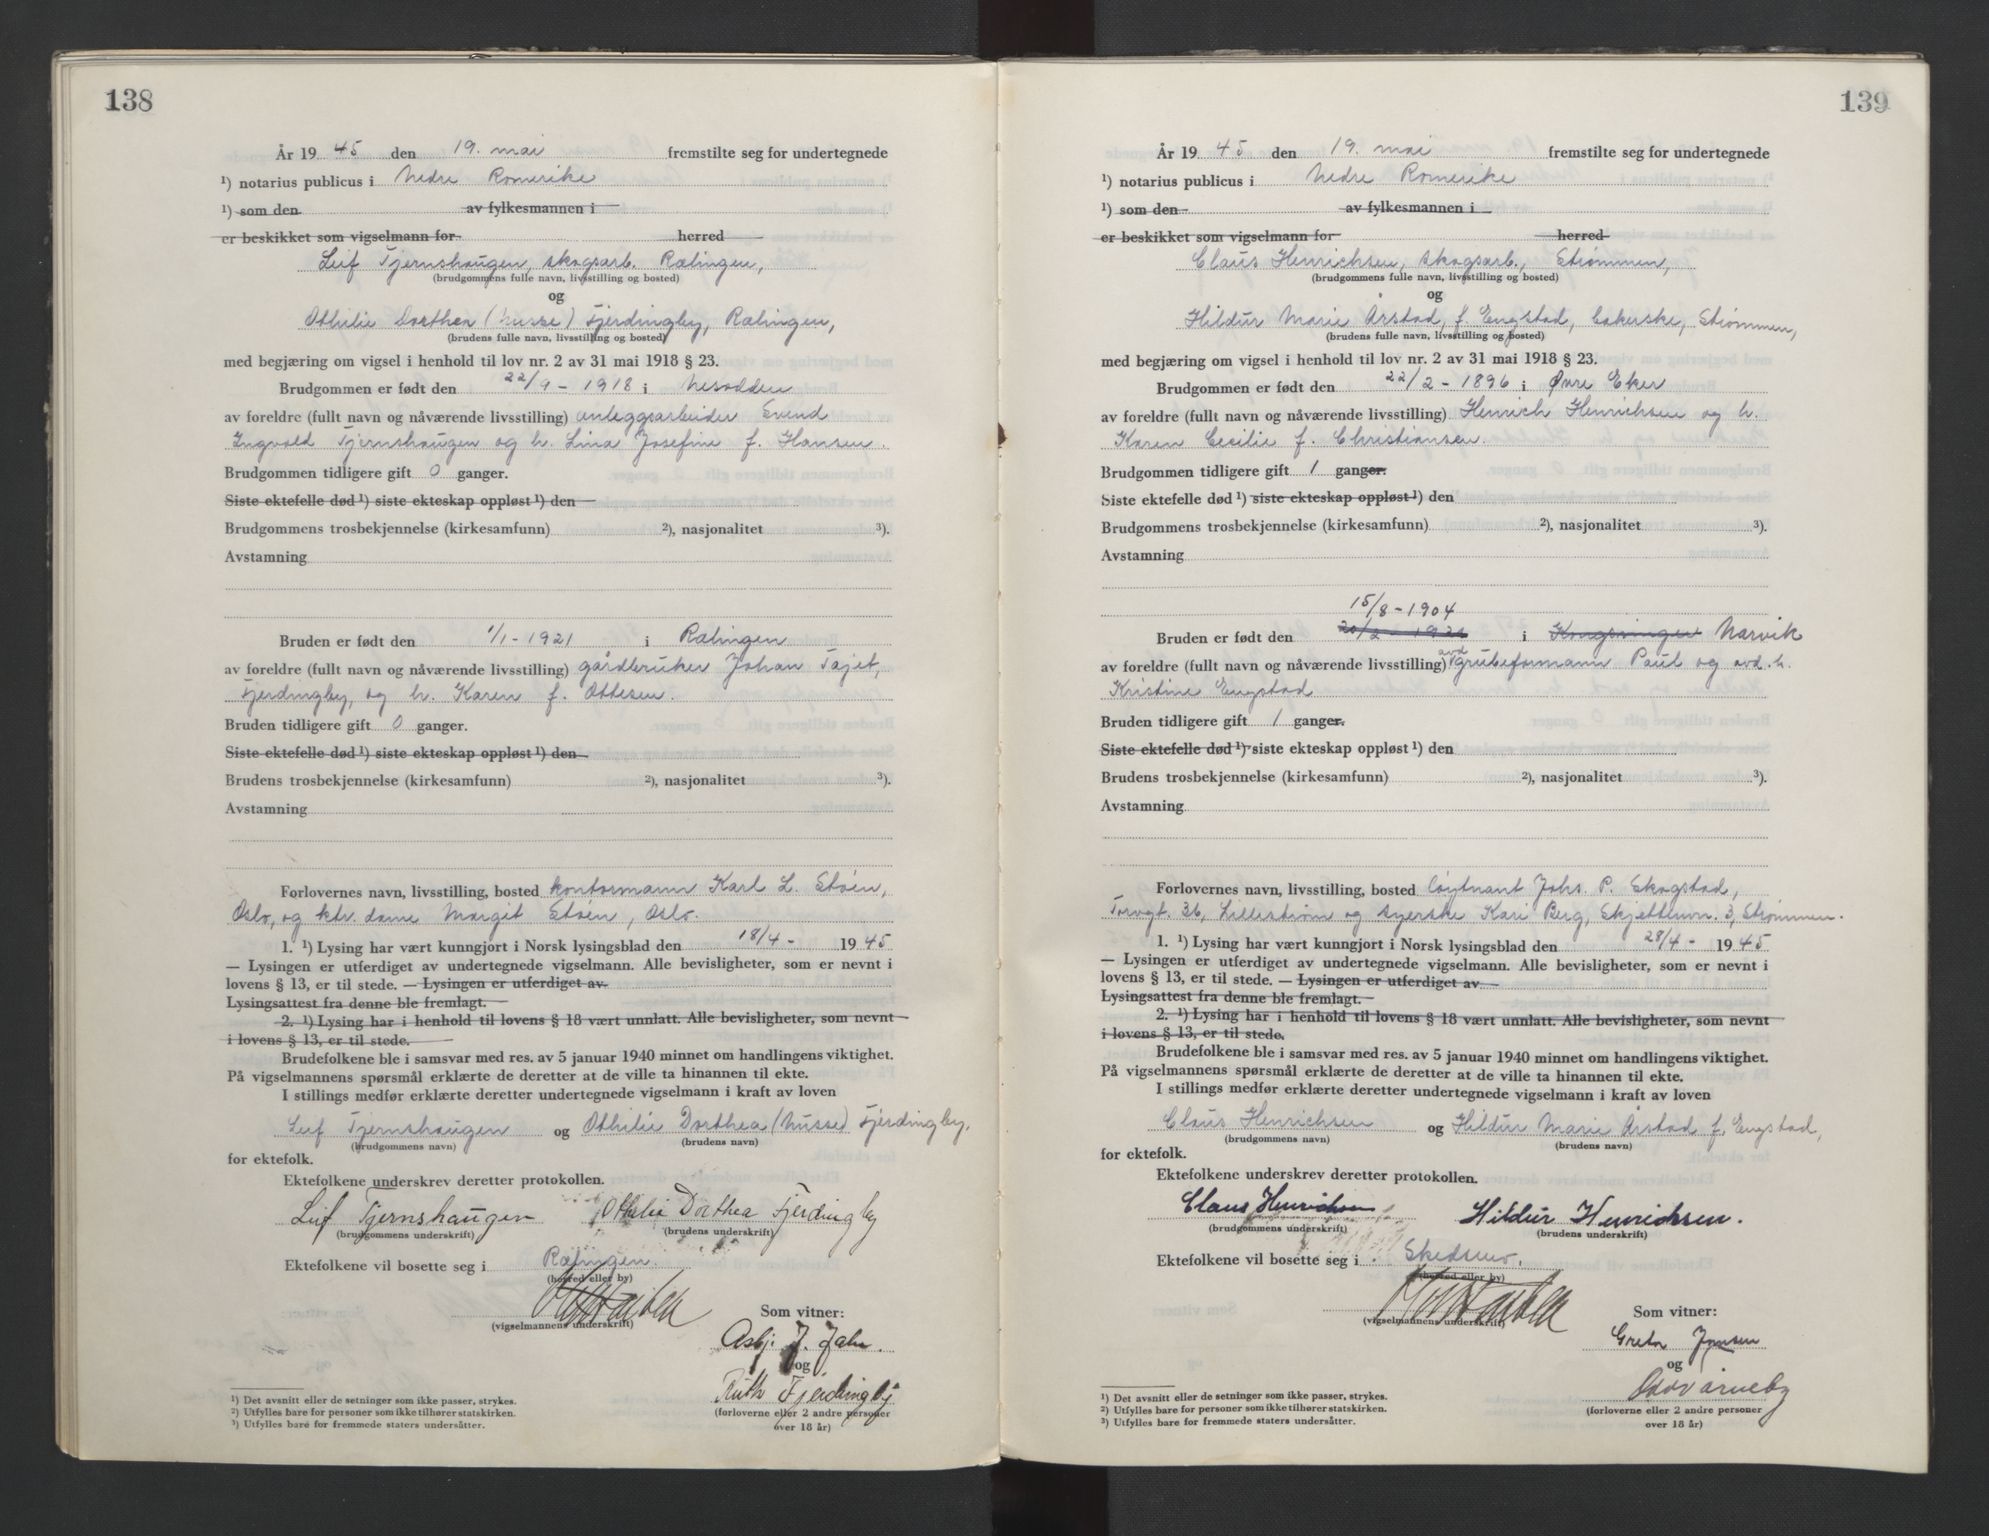 138
År 19 45 den 19. mai fremstilte seg for undertegnede
¹) notarius publicus i Nedre Romerike
¹) som den av fylkesmannen i
er beskikket som vigselmann for herred
Leif Tjernshaugen, skogsarb. Rælingen,
(brudgommens fulle navn, livsstilling og bosted)
og
Othilie Dorthea (Nusse) Fjerdingby, Rælingen,
(brudens fulle navn, livsstilling og bosted)
med begjæring om vigsel i henhold til lov nr. 2 av 31 mai 1918 § 23.
Brudgommen er født den 22/9 - 1918 i Nesodden
av foreldre (fullt navn og nåværende livsstilling) anleggsarbeider Svend
Ingvald Tjernshaugen og h. Lina Josefine f. Hansen.
Brudgommen tidligere gift 0 ganger.
Siste ektefelle død ¹) siste ekteskap oppløst ¹) den
Brudgommens trosbekjennelse (kirkesamfunn) ²), nasjonalitet ³).
Avstamning
Bruden er født den 1/1 - 1921 i Rælingen
av foreldre (fullt navn og nåværende livsstilling) gårdbruker Johan Tajet,
Fjerdingby, og h. Karen f. Ottesen.
Bruden tidligere gift 0 ganger.
Siste ektefelle død ¹) siste ekteskap oppløst ¹) den
Brudens trosbekjennelse (kirkesamfunn) ²), nasjonalitet ³).
Avstamning
Forlovernes navn, livsstilling, bosted kontormann Karl L. Støen,
Oslo, og ktr. dame Margit Støen, Oslo.
1. ¹) Lysing har vært kunngjort i Norsk lysingsblad den 18/4 - 1945
— Lysingen er utferdiget av undertegnede vigselmann. Alle bevisligheter, som er nevnt i
lovens § 13, er til stede. — Lysingen er utferdiget av
Lysingsattest fra denne ble fremlagt.
2. ¹) Lysing har i henhold til lovens § 18 vært unnlatt. Alle bevisligheter, som nevnt
i lovens § 13, er til stede.
Brudefolkene ble i samsvar med res. av 5 januar 1940 minnet om handlingens viktighet.
På vigselmannens spørsmål erklærte de deretter at de ville ta hinannen til ekte.
I stillings medfør erklærte deretter undertegnede vigselmann i kraft av loven
Leif Tjernshaugen og Othilie Dorthea (Nusse) Fjerdingby,
(brudgommens navn) (brudens navn)
for ektefolk.
Ektefolkene underskrev deretter protokollen.
Leif Tjernshaugen Othilie Dorthea Fjerdingby
(brudgommens underskrift) (brudens underskrift)
Ektefolkene vil bosette seg i Rælingen.
(herred eller by)
(vigselmannens underskrift) Som vitner:
Asbj. J. Jahr.
og
Ruth Fjerdingby
(forloverne eller 2 andre personer
over 18 år)
¹) Det avsnitt eller de setninger som ikke passer, strykes.
²) Utfylles bare for personer som ikke tilhører statskirken.
³) Utfylles bare for fremmede staters undersåtter.
139
År 19 45 den 19. mai fremstilte seg for undertegnede
¹) notarius publicus i Nedre Romerike
¹) som den av fylkesmannen i
er beskikket som vigselmann for herred
Claus Henrichsen, skogsarb., Strømmen,
(brudgommens fulle navn, livsstilling og bosted)
og
Hildur Marie Årstad, f. Engstad, bakerske, Strømmen,
(brudens fulle navn, livsstilling og bosted)
med begjæring om vigsel i henhold til lov nr. 2 av 31 mai 1918 § 23.
Brudgommen er født den 22/2 - 1896 i Øvre Eker
av foreldre (fullt navn og nåværende livsstilling) Henrich Henrichsen og h.
Karen Cecilie f. Christiansen.
Brudgommen tidligere gift 1 ganger.
Siste ektefelle død ¹) siste ekteskap oppløst ¹) den
Brudgommens trosbekjennelse (kirkesamfunn) ²), nasjonalitet ³).
Avstamning
15/8 - 1904
Bruden er født den 20/2 - 1921 i Kongsvinger Narvik
av foreldre (fullt navn og nåværende livsstilling) avd. grubeformann Paul og avd. h.
Kristine Engstad
Bruden tidligere gift 1 ganger.
Siste ektefelle død ¹) siste ekteskap oppløst ¹) den
Brudens trosbekjennelse (kirkesamfunn) ²), nasjonalitet ³).
Avstamning
Forlovernes navn, livsstilling, bosted løytnant Johs. P. Skogstad,
Torvgt. 36, Lillestrøm og syerske Kari Berg, Skjettenvn. 3, Strømmen.
1. ¹) Lysing har vært kunngjort i Norsk lysingsblad den 28/4 - 1945
— Lysingen er utferdiget av undertegnede vigselmann. Alle bevisligheter, som er nevnt i
lovens § 13, er til stede. — Lysingen er utferdiget av
Lysingsattest fra denne ble fremlagt.
2. ¹) Lysing har i henhold til lovens § 18 vært unnlatt. Alle bevisligheter, som nevnt
i lovens § 13, er til stede.
Brudefolkene ble i samsvar med res. av 5 januar 1940 minnet om handlingens viktighet.
På vigselmannens spørsmål erklærte de deretter at de ville ta hinannen til ekte.
I stillings medfør erklærte deretter undertegnede vigselmann i kraft av loven
Claus Henrichsen og Hildur Marie Årstad f. Engstad,
(brudgommens navn) (brudens navn)
for ektefolk.
Ektefolkene underskrev deretter protokollen.
Claus Henrichsen Hildur Henrichsen.
(brudgommens underskrift) (brudens underskrift)
Ektefolkene vil bosette seg i Skedsmo.
(herred eller by)
(vigselmannens underskrift) Som vitner:
Greta Jansen
og
(forloverne eller 2 andre personer
over 18 år)
¹) Det avsnitt eller de setninger som ikke passer, strykes.
²) Utfylles bare for personer som ikke tilhører statskirken.
³) Utfylles bare for fremmede staters undersåtter.